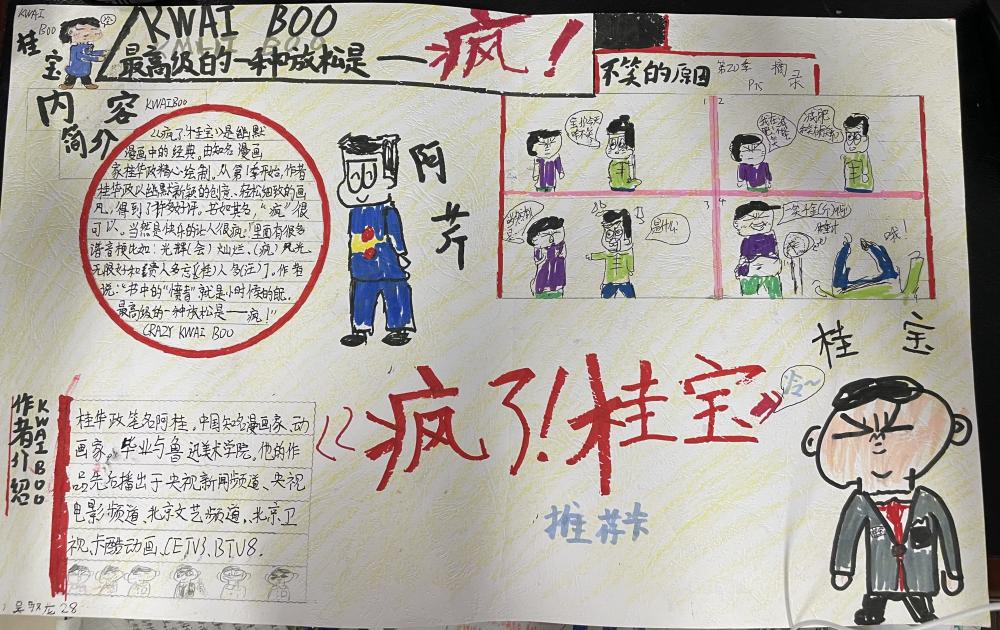 KWAI
BOO
桂
宝
KWAI BOO
最高级的一种放松是——疯!
不笑的原因
第20季 摘录
P15
内容
简介
KWAIBOO
《疯了!桂宝》是幽默
漫画中的经典。由知名漫画
家桂华政精心绘制。从第1季开始,作者
桂华政以幽默新颖的创意、轻松细致的画
风,得到了许多好评。
可以。当然是快乐的让人很疯!里面有很多
谐音梗比如:光辉(会)灿烂、(疯)风光
说:“书中的“愤青”就是小时候的
最高级的一种放松是——疯!”
CRAZY KWAI BOO
阿
芹
1
2
3
4
宝儿今天
咋不笑
是什么
哦!
桂 宝
作者介绍
KWAI BOO
桂华政笔名阿桂,中国知名漫画家、动
画家。毕业与鲁迅美术学院。他的作
品先后播出于央视新闻频道、央视
电影频道、北京文艺频道、北京卫
视、卡酷动画、CETV3、BTV8.
《疯了!桂宝》
冷~
推荐卡
28